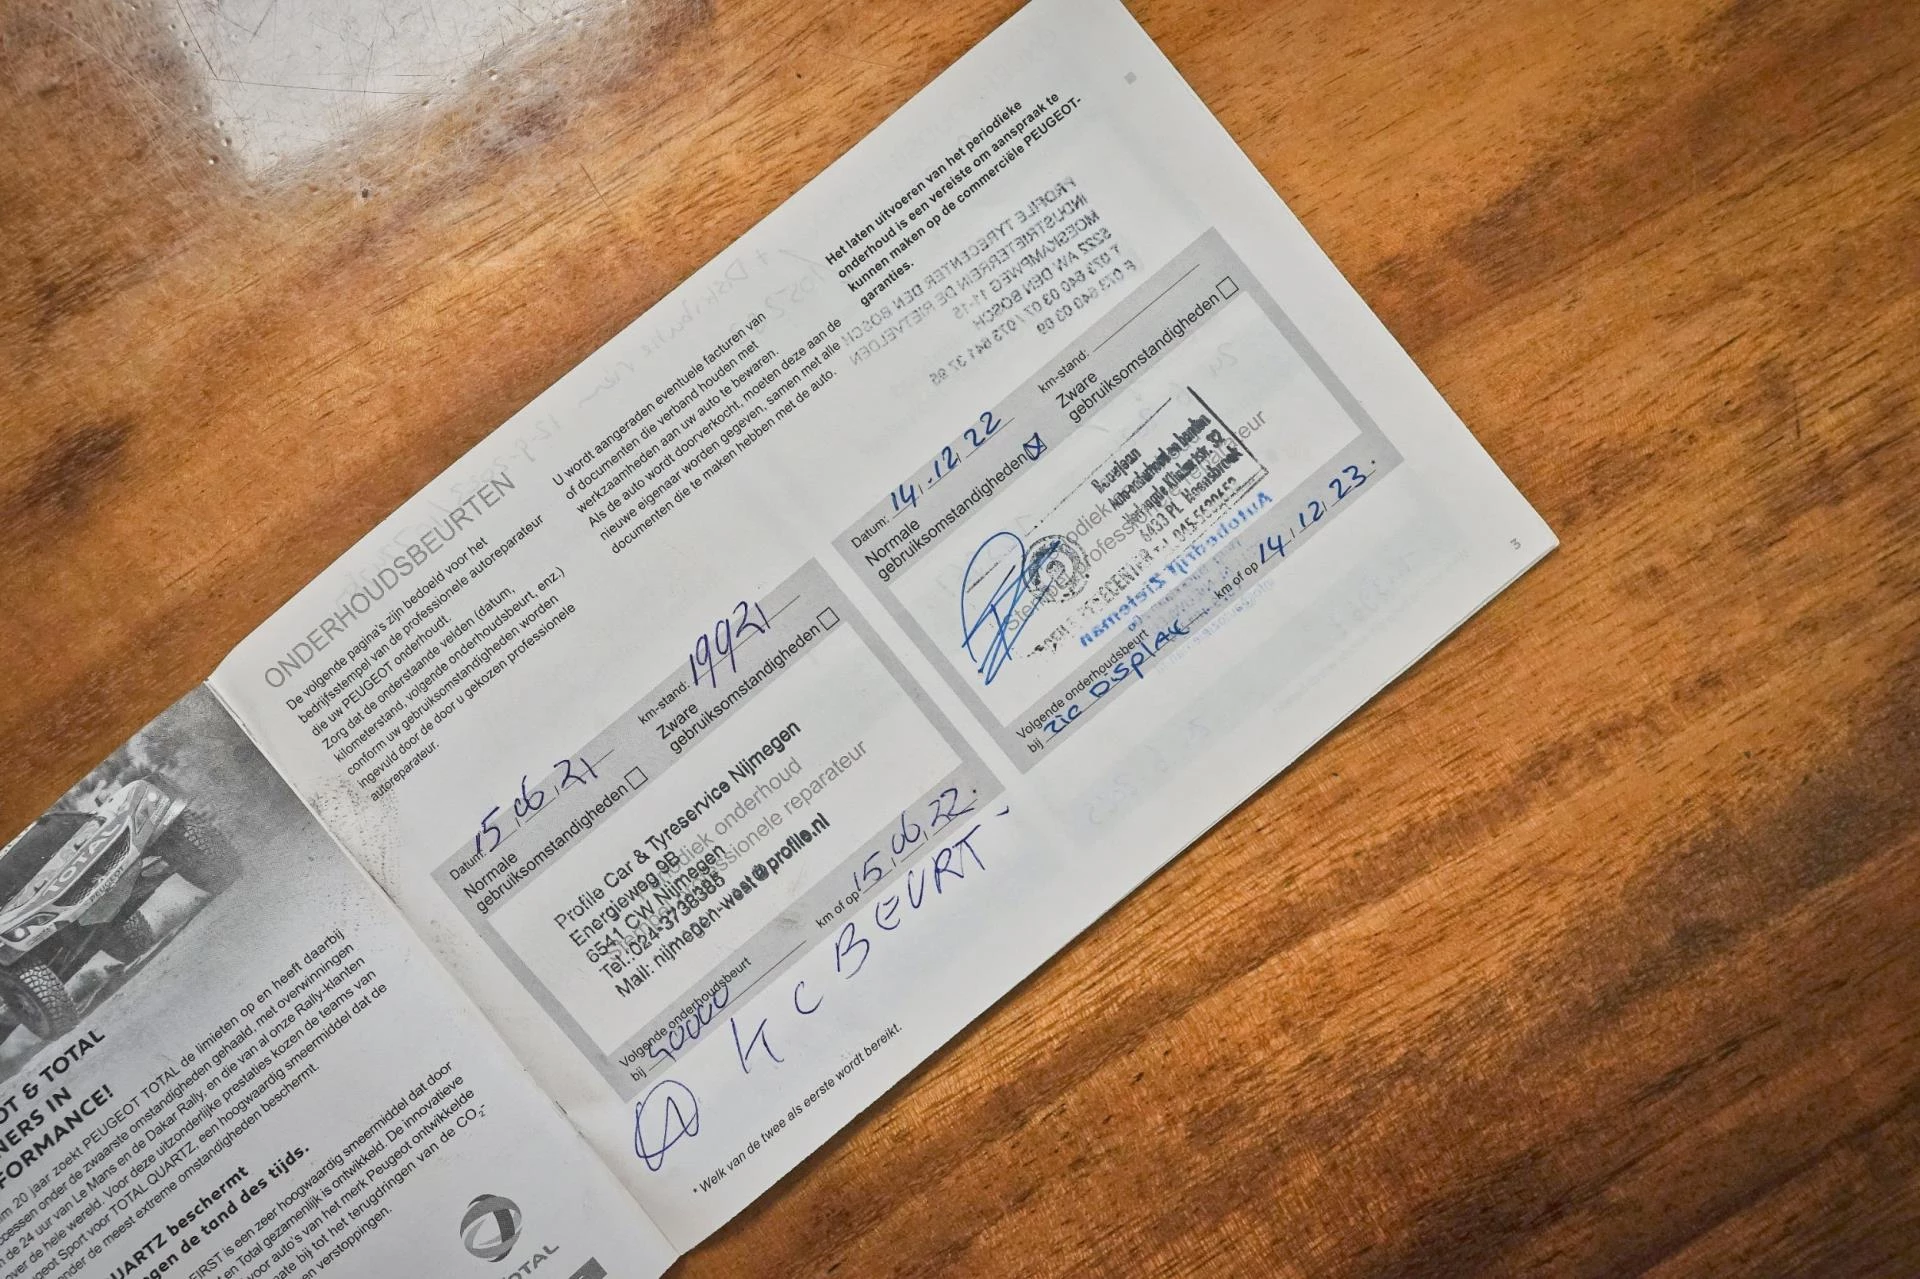 OT & TOTAL
NERS IN
FORMANCE!
im 20 jaar zoekt PEUGEOT TOTAL de limieten op en heeft daarbij
ccessen onder de zwaarste omstandigheden gehaald, met overwinningen
n de 24 uur van Le Mans en de Dakar Rally, en die van al onze Rally-klanten
over de hele wereld. Voor deze uitzonderlijke prestaties kozen de teams van
geot Sport voor TOTAL QUARTZ, een hoogwaardig smeermiddel dat de
nder de meest extreme omstandigheden beschermt.
UARTZ beschermt
gen de tand des tijds.
FIRST is een zeer hoogwaardig smeermiddel dat door
en Total gezamenlijk is ontwikkeld. De innovatieve
voor auto's van het merk Peugeot ontwikkelde
mate bij tot het terugdringen van de CO₂-
en verstoppingen.
TOTAL
TOTAL
PEUGEOT
ONDERHOUDSBEURTEN
De volgende pagina's zijn bedoeld voor het
bedrijfsstempel van de professionele autoreparateur
die uw PEUGEOT onderhoudt.
Zorg dat de onderstaande velden (datum,
kilometerstand, volgende onderhoudsbeurt, enz.)
conform uw gebruiksomstandigheden worden
ingevuld door de door u gekozen professionele
autoreparateur.
U wordt aangeraden eventuele facturen van
of documenten die verband houden met
werkzaamheden aan uw auto te bewaren.
Als de auto wordt doorverkocht, moeten deze aan de
nieuwe eigenaar worden gegeven, samen met alle
documenten die te maken hebben met de auto.
Het laten uitvoeren van het periodieke
onderhoud is een vereiste om aanspraak te
kunnen maken op de commerciële PEUGEOT-
garanties.
Datum: 15.06.21
km-stand: 19921
Normale
gebruiksomstandigheden
Zware
gebruiksomstandigheden
Profile Car & Tyreservice Nijmegen
Energieweg 9B
6541 CW Nijmegen
Tel.:024-3738385
Mail: nijmegen-west@profile.nl
Volgende onderhoudsbeurt
bij 40000 km of op 15.06.22.
KC BEURT
Datum: 14.12.22
km-stand:
Normale
gebruiksomstandigheden
Zware
gebruiksomstandigheden
6433 PL Hoensbroek
Volgende onderhoudsbeurt
bij zie Display km of op 14.12.23.
* Welk van de twee als eerste wordt bereikt.
3